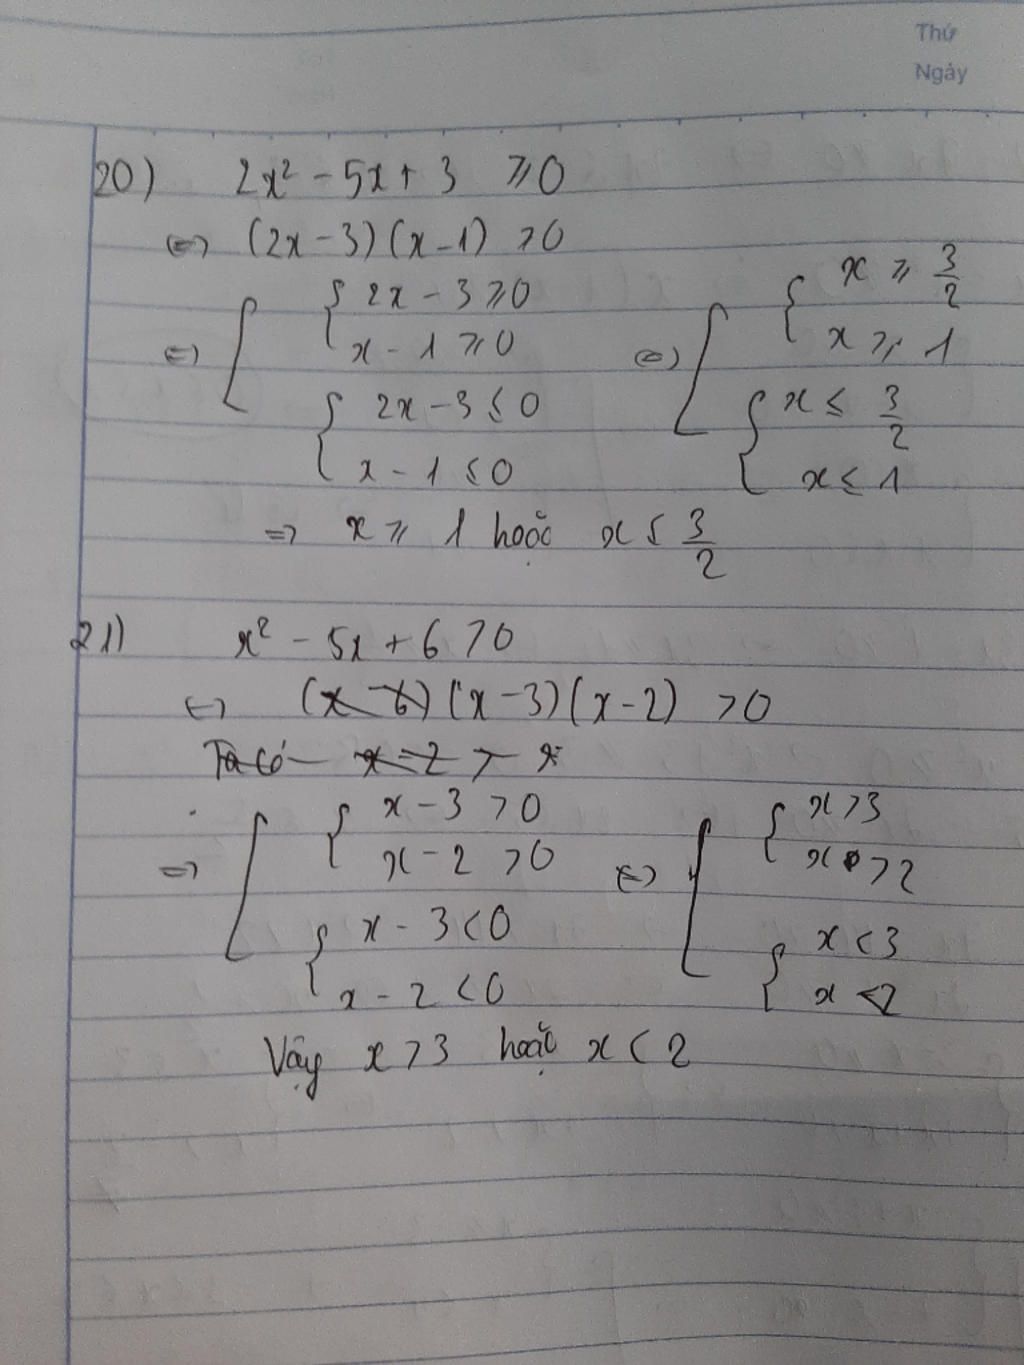 Thứ
Ngày
20) 2x² - 5x + 3 ⩾ 0
⇔ (2x - 3)(x - 1) ⩾ 0
⇔ [ { 2x - 3 ⩾ 0 ⇔ [ { x ⩾ 3/2
x - 1 ⩾ 0 x ⩾ 1
{ 2x - 3 ≤ 0 { x ≤ 3/2
x - 1 ≤ 0 x ≤ 1
⇒ x ⩾ 1 hoặc x ≤ 3/2
21) x² - 5x + 6 > 0
⇔ (x - 6) (x - 3)(x - 2) > 0
Ta có x - 2 > x
⇒ [ { x - 3 > 0 ⇔ [ { x > 3
x - 2 > 0 x > 2
{ x - 3 < 0 { x < 3
x - 2 < 0 x < 2
Vậy x > 3 hoặc x < 2